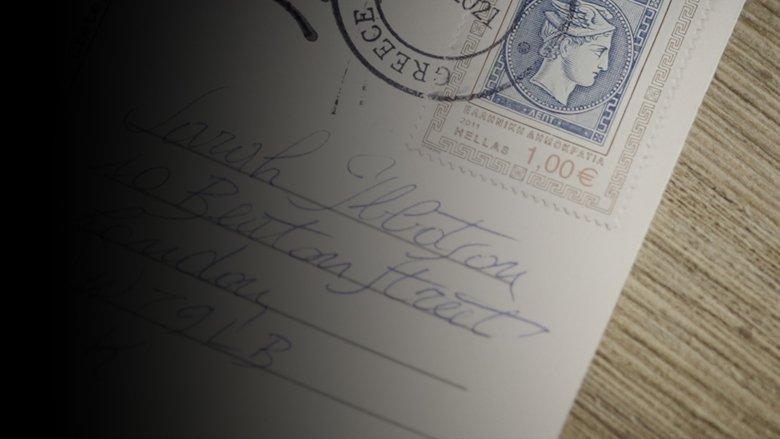 GREECE
ΛΕΠΤ
ΕΛΛΗΝΙΚΗ ΔΗΜΟΚΡΑΤΙΑ
2011
HELLAS 1,00€
Sarah Ibbotson
10 Benton Street
London
W7 9LB